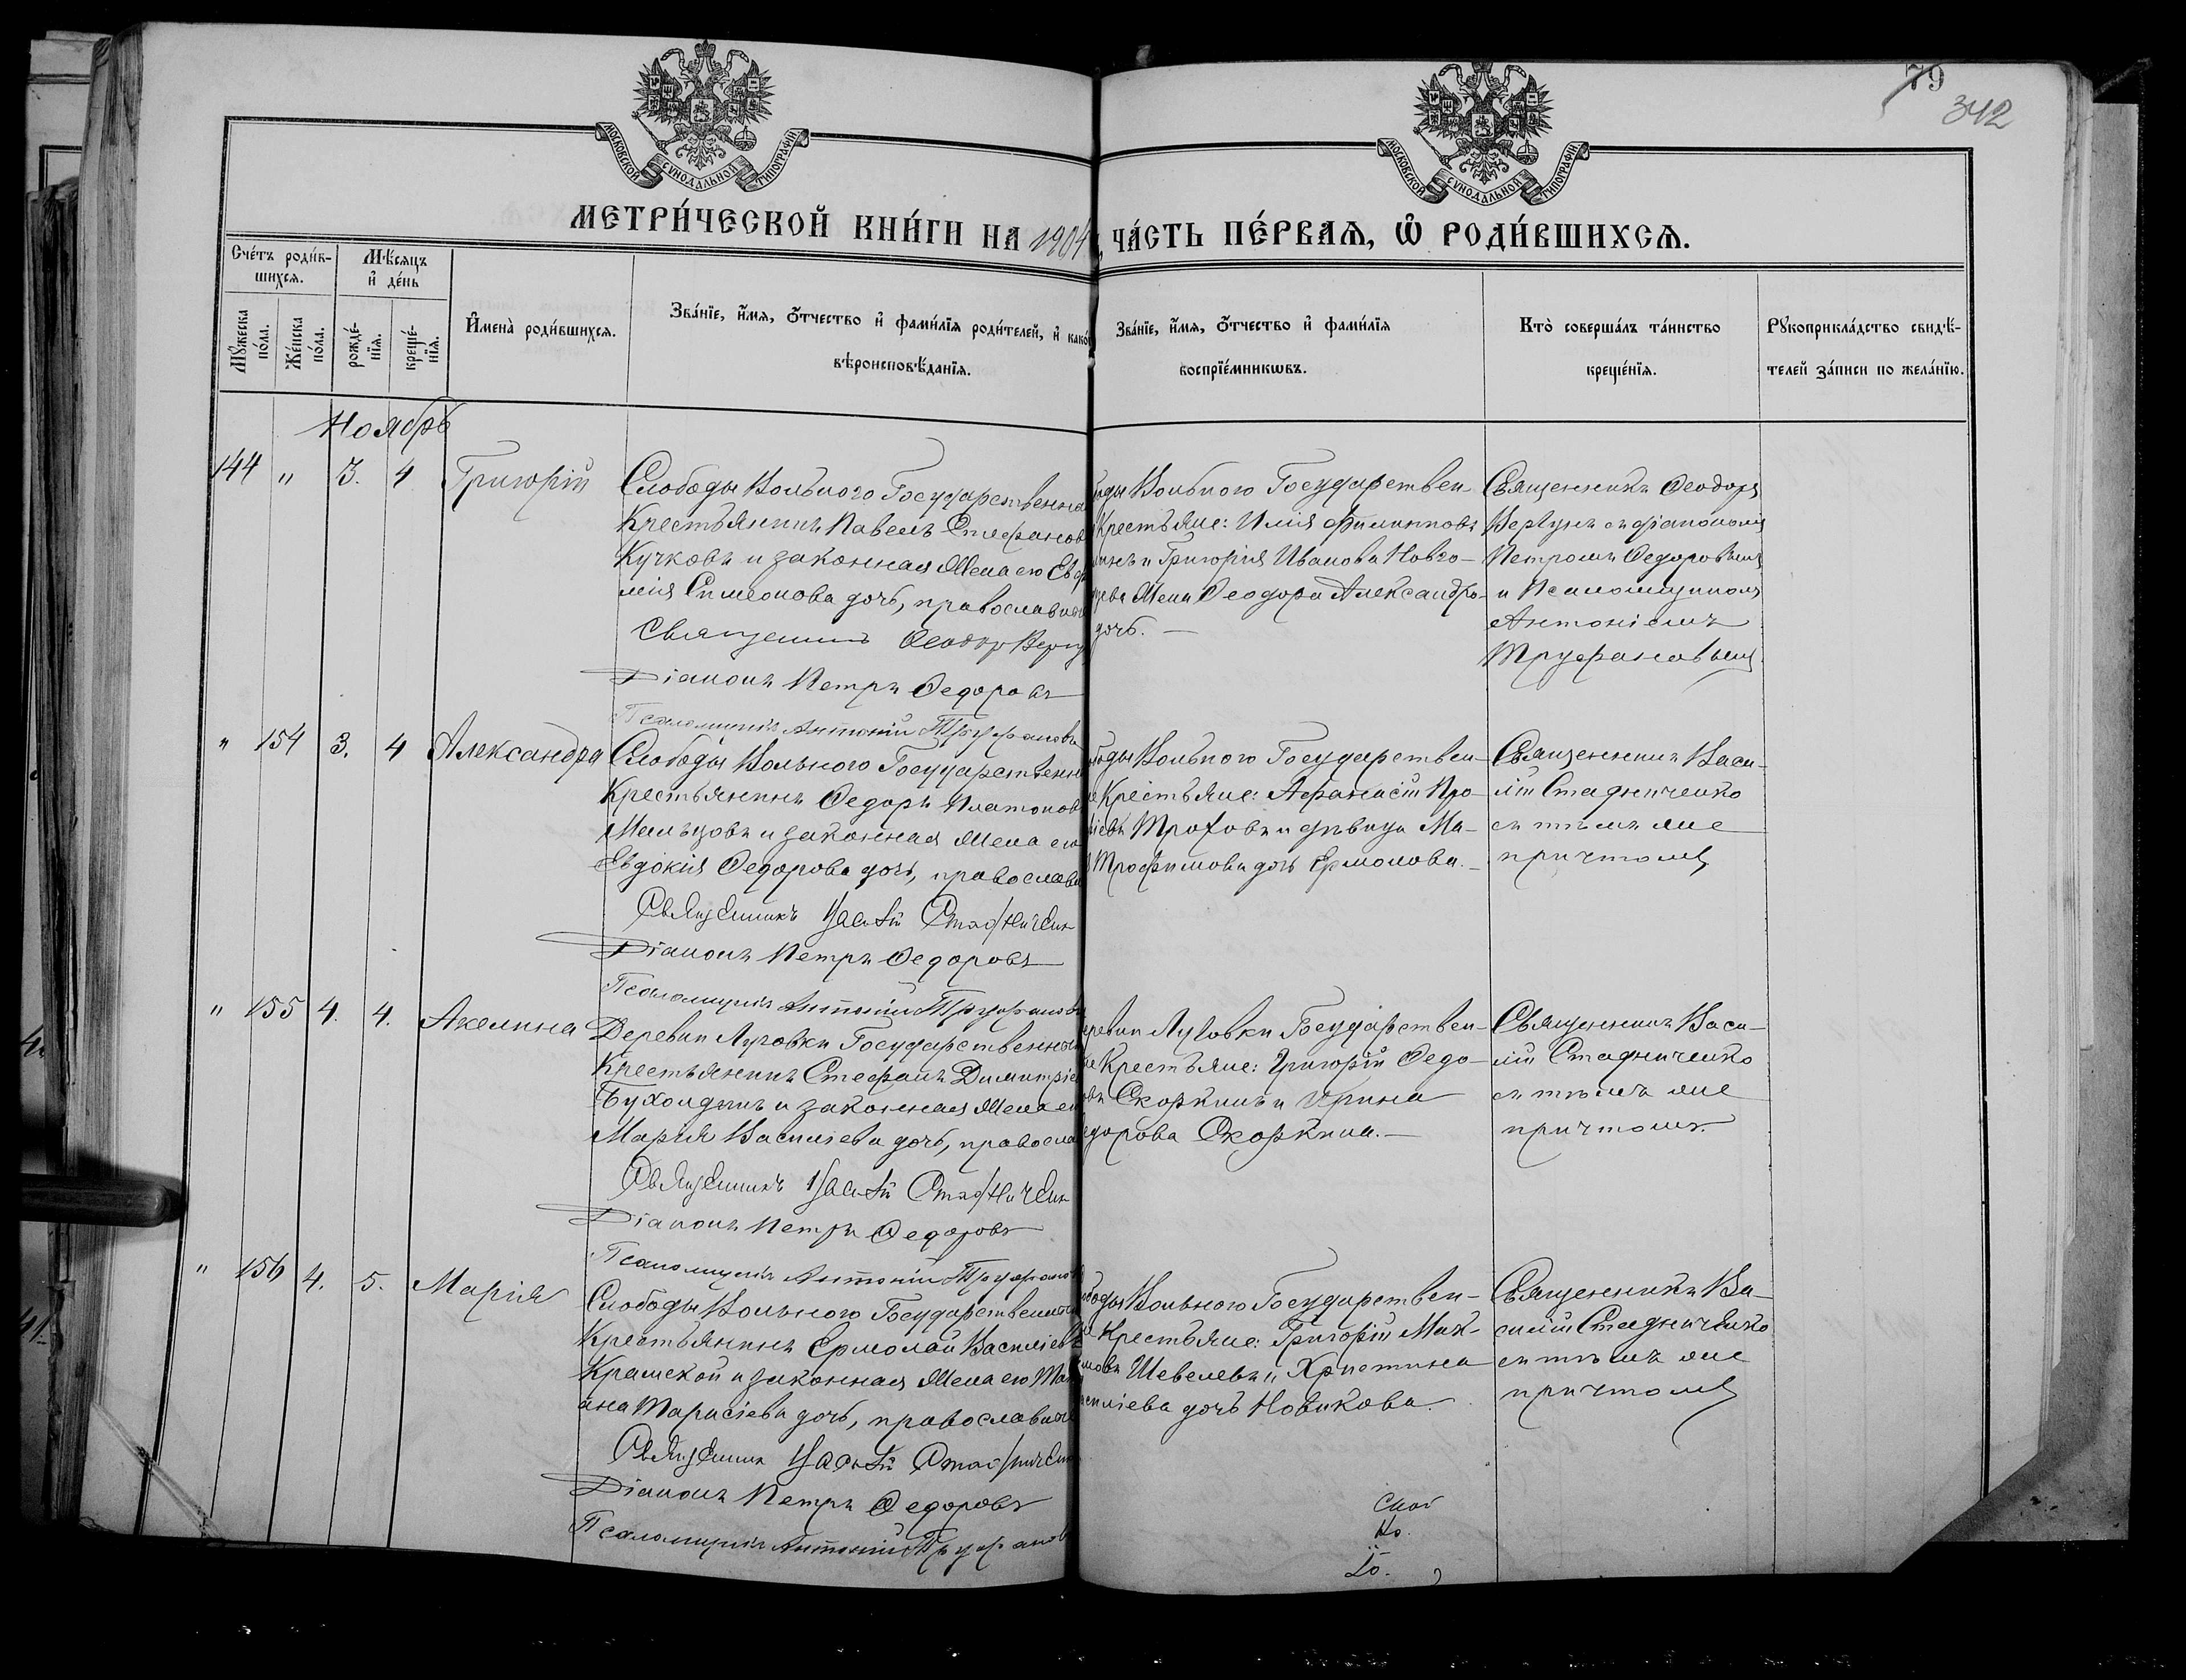 79
342
МОСКОВСКОЙ СѴНОДАЛЬНОЙ ТИПОГРАФІИ
МОСКОВСКОЙ СѴНОДАЛЬНОЙ ТИПОГРАФІИ
МЕТРИ́ЧЕСКОЙ КНИ́ГИ НА 1904, ЧА́СТЬ ПЕ́РВАѦ, Ѡ҆ РОДИ́ВШИХСѦ.
Сче́тъ роди́в-
шихсѧ.
Мꙋ́жеска по́ла.
Же́нска по́ла.
Мѣ́сѧцъ
и҆ де́нь
рожде́-
нїѧ.
креще́-
нїѧ.
И҆мена̀ роди́вшихсѧ.
Зва́нїе, и҆́мѧ, ѻ҆́тчество и҆ фами́лїѧ роди́телей, и҆ како́
вѣроисповѣ́данїѧ.
Зва́нїе, и҆́мѧ, ѻ҆́тчество и҆ фами́лїѧ
воспрїе́мникѡвъ.
Кто̀ соверша́лъ та́инство
креще́нїѧ.
Рꙋкоприкла́дство свидѣ́-
телей за́писи по жела́нїю.
Ноябрь
144 " 3. 4 Григорій
Слободы Вольнаго Государственна
Крестьянинъ Павелъ Стефанов
Кучковъ и законная жена его Евф
мія Симеонова дочь, православны
Священникъ Ѳеодоръ Верг
Діаконъ Петръ Ѳедоровъ
Псаломщикъ Антоній Труфановъ
оды Вольнаго Государствен-
Крестьяне: Илія Филиповъ
инъ и Григорія Иванова Новго-
цева жена Ѳеодора Александро-
дочь. —
Священникъ Ѳеодоръ
Вергунъ съ діакономъ
Петромъ Ѳедоровымъ
и Псаломщикомъ
Антоніемъ
Труфановымъ.
" 154 3. 4 Александра
Слободы Вольнаго Государственн
Крестьянинъ Ѳедоръ Платонов
Мальцовъ и законная жена его
Евдокія Ѳедорова дочь, православн
Священникъ Василій Стадниченк
Діаконъ Петръ Ѳедоровъ
Псаломщикъ Антоній Труфановъ
боды Вольнаго Государствен-
е Крестьяне: Афанасій Про-
іевъ Троховъ и дѣвица Ма-
Трофимова дочь Ермолова. —
Священникъ Васи-
лій Стадниченко
съ тѣмъ же
причтомъ
" 155 4. 4. Акелина
Деревни Луговки Государственный
Крестьянинъ Стефанъ Димитріе
Бухолдинъ и законная жена ег
Марія Василіева дочь, правосла
Священникъ Василій Стадниченк
Діаконъ Петръ Ѳедоровъ
Псаломщикъ Антоній Труфанов
еревни Луговки Государствен-
е Крестьяне: Григорій Ѳедо-
овъ Скоркинъ и Ирина
едорова Скоркина. —
Священникъ Васи-
лій Стадниченко
съ тѣмъ же
причтомъ.
" 156 4. 5. Марія
Слободы Вольнаго Государственны
Крестьянинъ Ермолай Василіевъ
Крамской и законная жена его Тат
ана Тарасіева дочь, православны
Священникъ Василій Стадниченк
Діаконъ Петръ Ѳедоровъ
Псаломщикъ Антоній Труфанов
ободы Вольнаго Государствен-
Крестьяне: Григорій Мак-
имовъ Шевелевъ и Христина
асиліева дочь Новикова.
Священникъ Ва-
силій Стадниченко
съ тѣмъ же
причтомъ